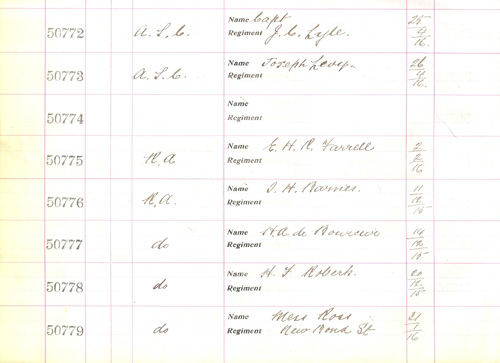 Name Capt 25
50772 A.S.C. Regiment J. C. Lyle. 9
16
Name Joseph 26
50773 A.S.C. Regiment 9
16
Name
50774
Regiment
Name E. H. R. Farrell 2
50775 R.A Regiment 2
16
Name H. Barnes 11
50776 R.A. Regiment 12
15
Name H A de 14
50777 do Regiment 12
15
Name H. F Roberts. 20
50778 do Regiment 12
15
Name Mess Ross 21
50779 do Regiment New Bond St 1
16